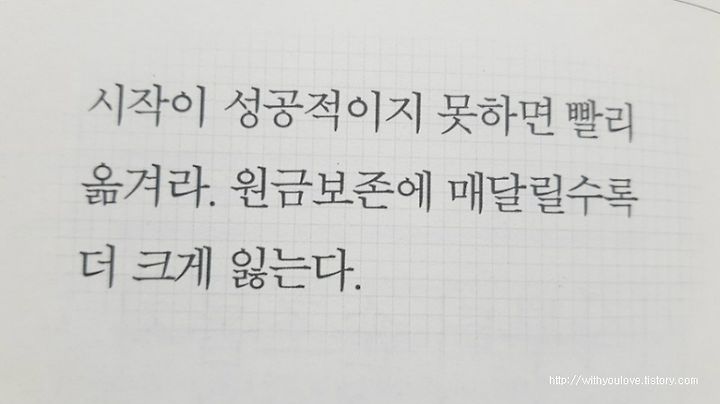 시작이 성공적이지 못하면 빨리
옮겨라. 원금보존에 매달릴수록
더 크게 잃는다.
http://withyoulove.tistory.com